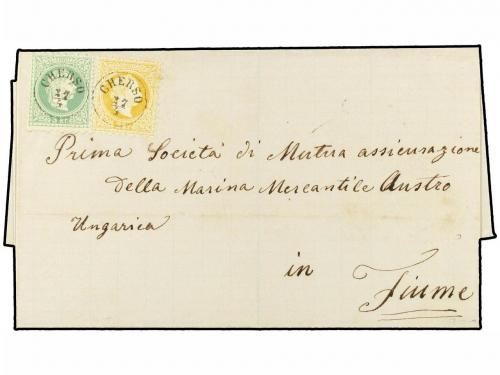 CHERSO
CHERSO
Prima Società di Mutua assicurazione
della Marina Mercantile Austro
Ungarica
in
Fiume